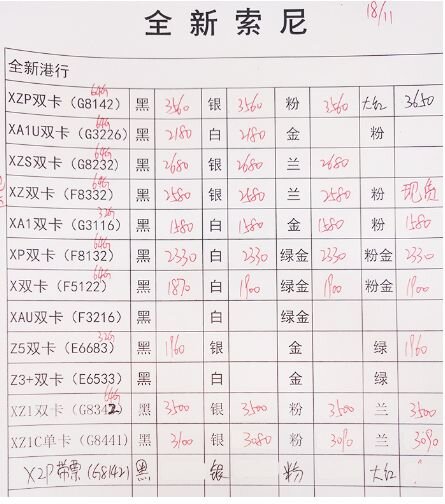 18/11
全新索尼
全新港行
XZP双卡(G8142) 64G 黑 3560 银 3560 粉 3560 大红 3650
XA1U双卡(G3226) 64G 黑 2180 白 2180 金 粉
XZS双卡(G8232) 64G 黑 2680 银 2680 兰 2680
XZ双卡(F8332) 64G 黑 2580 银 2580 兰 2580 粉 现货
XA1双卡(G3116) 32G 黑 1580 白 1580 金 1580 粉 1580
XP双卡(F8132) 64G 黑 2330 白 2330 绿金 2330 粉金 2330
X双卡(F5122) 64G 黑 1870 白 1900 绿金 1900 粉金 1900
XAU双卡(F3216) 黑 白 绿金
Z5双卡(E6683) 32G 黑 1960 银 金 绿 1960
Z3+双卡(E6533) 黑 白 金 绿
XZ1双卡(G8342) 64G 黑 3500 银 3500 粉 3500 兰 3500
XZ1C单卡(G8441) 黑 3100 银 3080 粉 3090 兰 3090
XZP带票(G8142) 黑 银 粉 大红